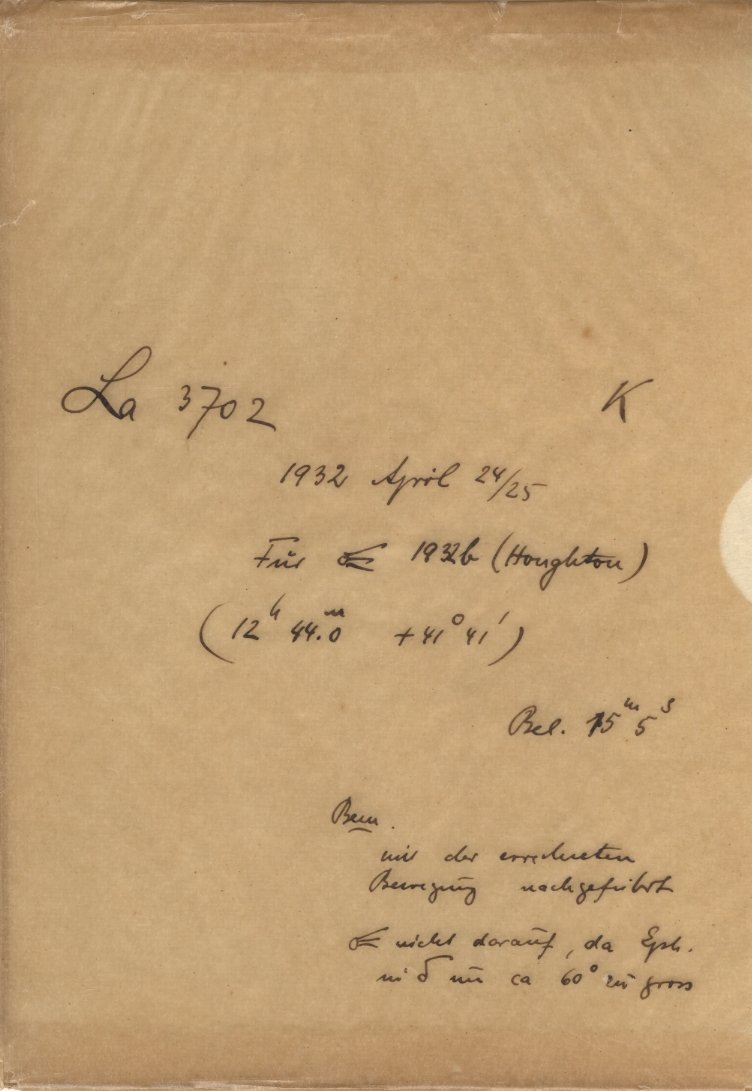 La 3702 K
1932 April 24/25
Für ☄ 1932b (Houghton)
(12ʰ 44.ᵐ0 +41° 41')
Bel. 15ᵐ 5ˢ
Bem.
mit der errechneten
Bewegung nachgeführt
☄ nicht darauf, da Eph.
in δ um ca 60° zu gross